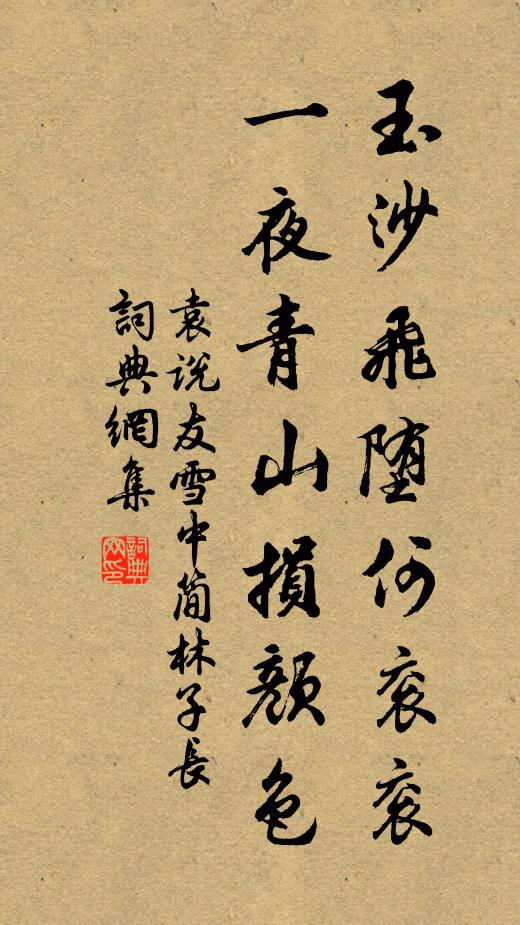 玉沙飛堕何衮衮
一夜青山損顔色
袁说友雪中简林子長
詞典網集
詞典网印